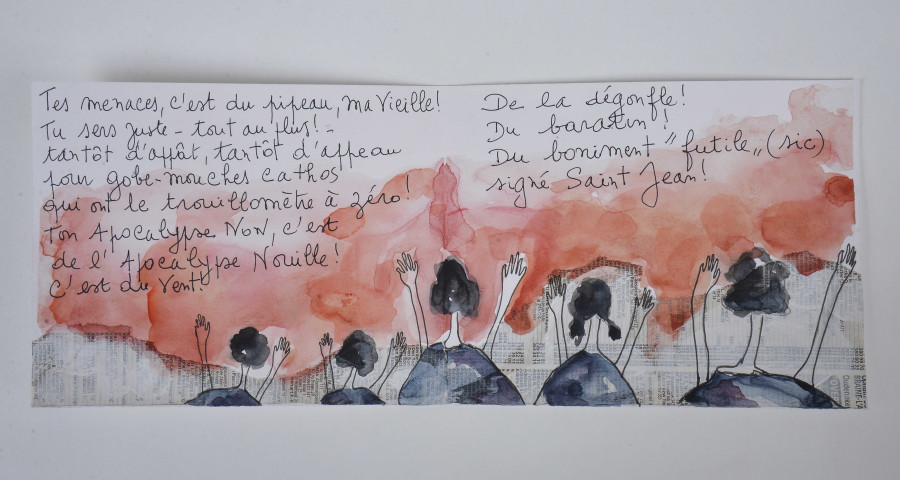 Tes menaces, c'est du pipeau, ma Vieille!
Tu sers juste - tout au plus! -
tantôt d'appât, tantôt d'appeau
pour gobe-mouches cathos
qui ont le trouillomètre à zéro!
Ton Apocalypse Now, c'est
de l'Apocalypse Nouille!
C'est du vent!
De la dégonfle!
Du baratin!
Du boniment "futile" (sic)
signé Saint Jean!